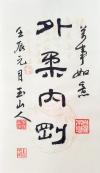 萬事如意
外柔内剛
壬辰元月玉山人